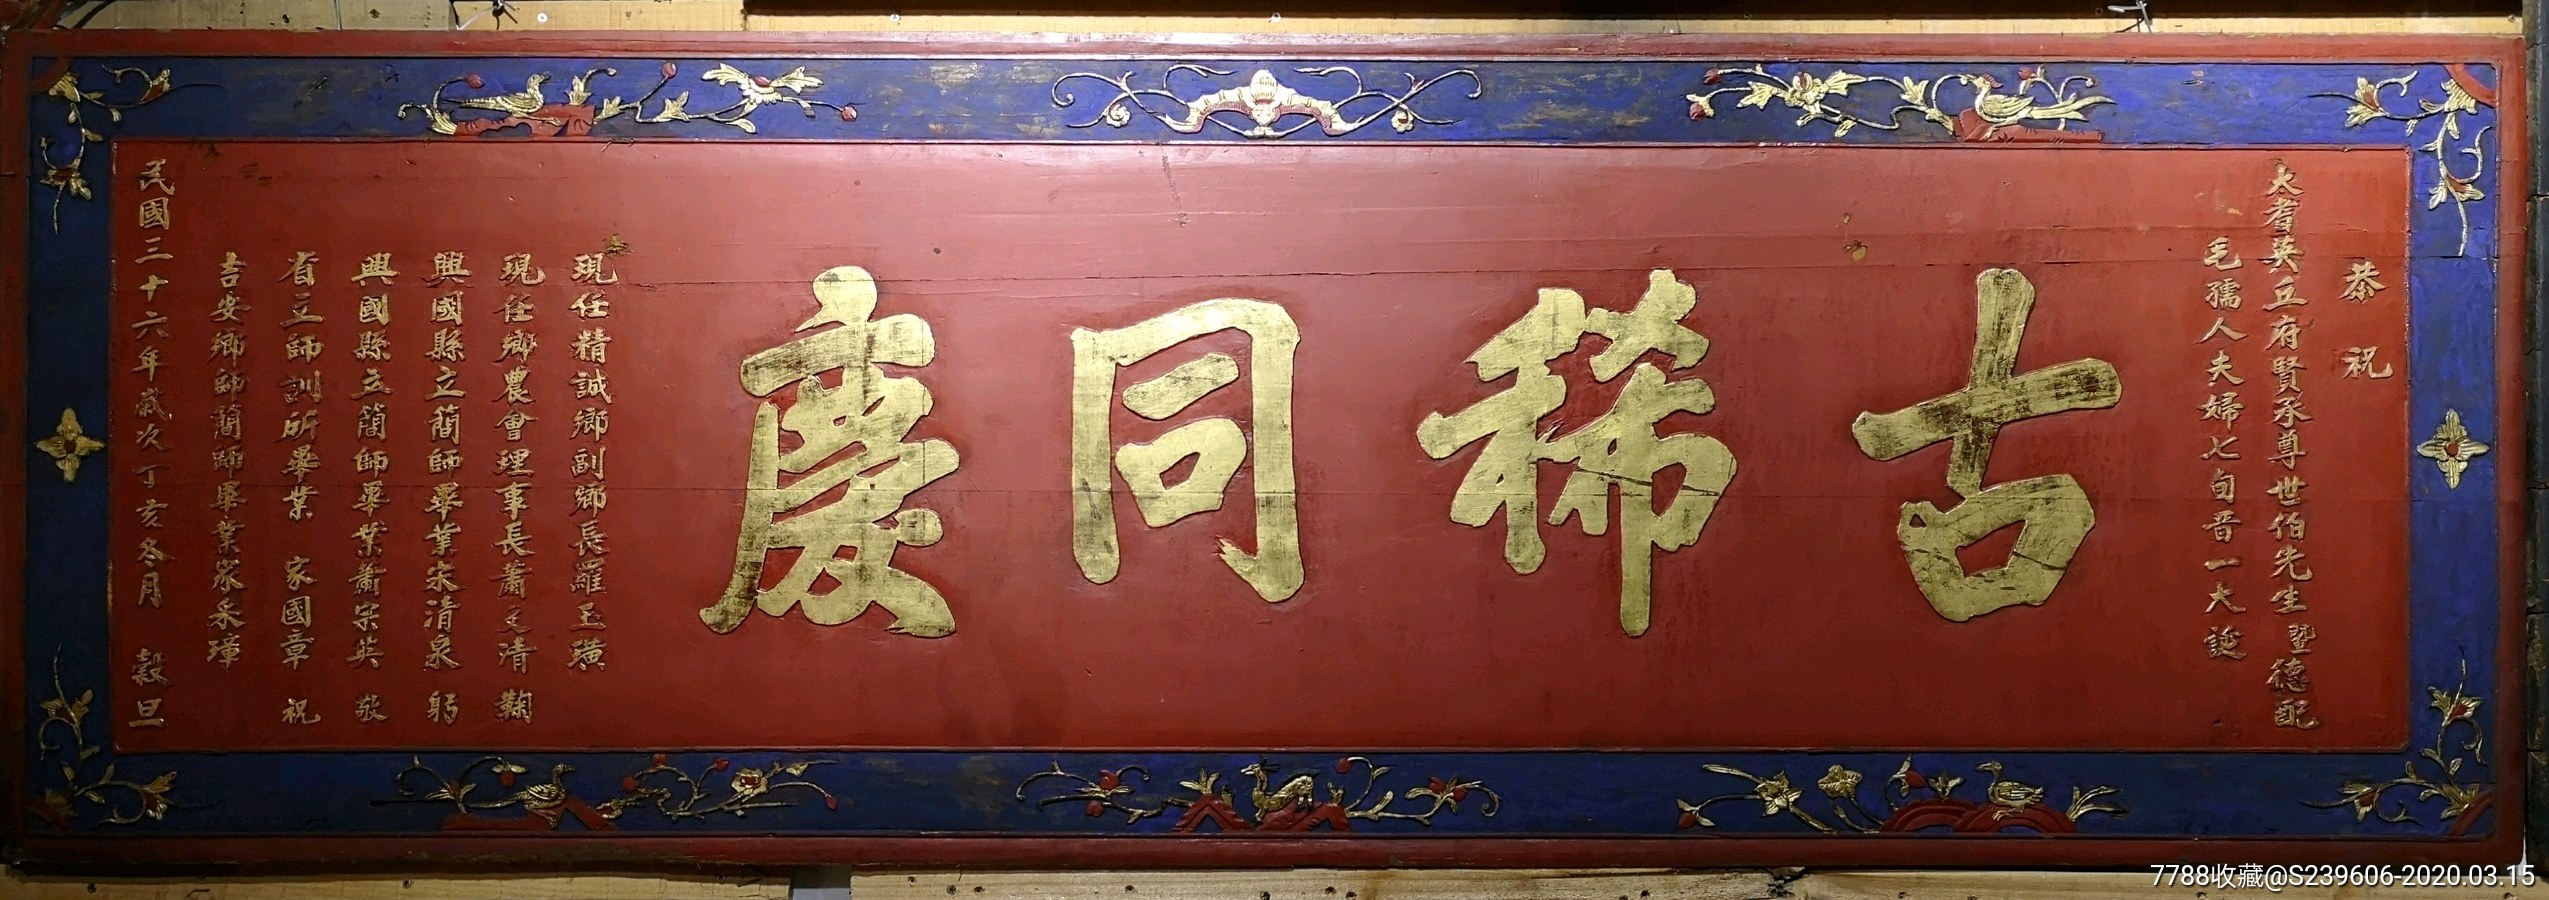 恭祝
大耆英丘府賢承尊世伯先生暨德配
毛孺人夫婦七旬晋一大誕
古稀同慶
現任精誠鄉副鄉長羅玉璜
現任鄉農會理事長蕭之清 鞠
興國縣立簡師畢業宋清泉 躬
興國縣立簡師畢業蕭宗英 敬
省立師訓所畢業 家國章 祝
吉安鄉師簡師畢業家采璋
民國三十六年歲次丁亥冬月 穀旦
7788收藏@S239606-2020.03.15